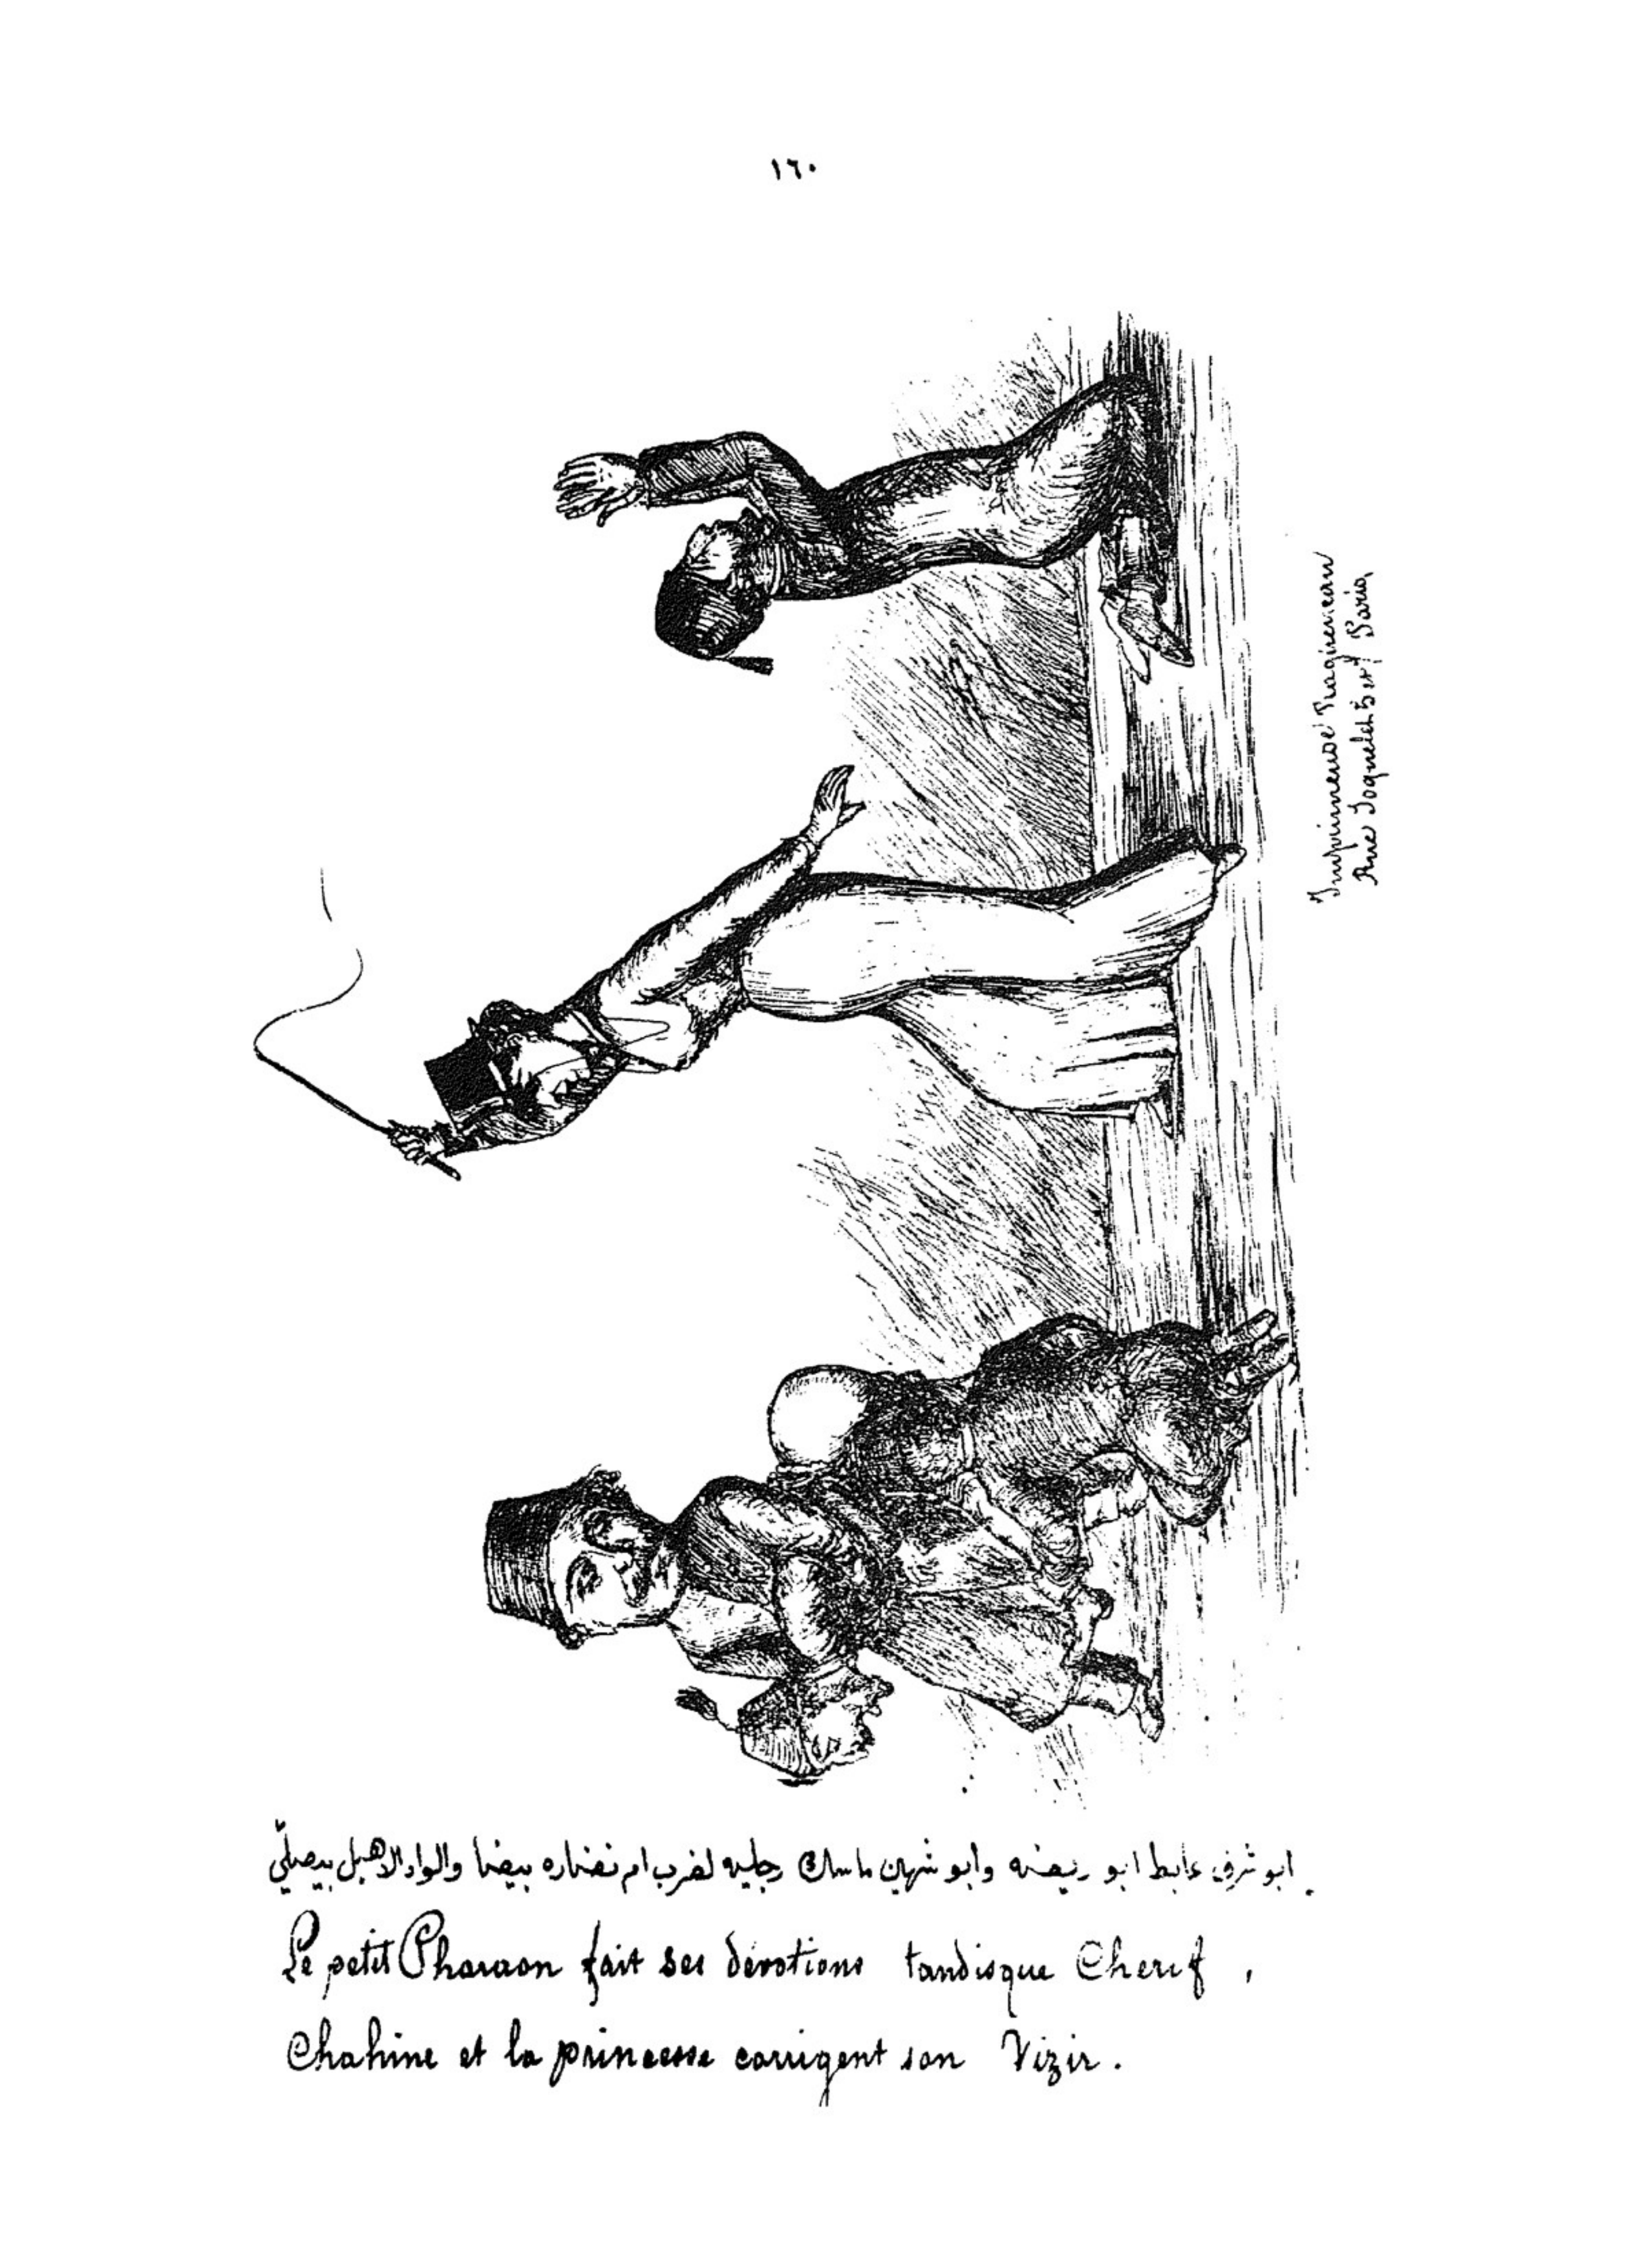 ١٦٠
Rue Joquelet 5 et 7 Paris,
ابو شرف عابط ابو ريضه وابو شهين ماسك رجليه لضرب ام نضاره بيضا والواد الاهبل بيصلّي
Le petit Pharaon fait ses devotions tandisque Cherif,
Chahine et la princesse corrigent son Vizir.